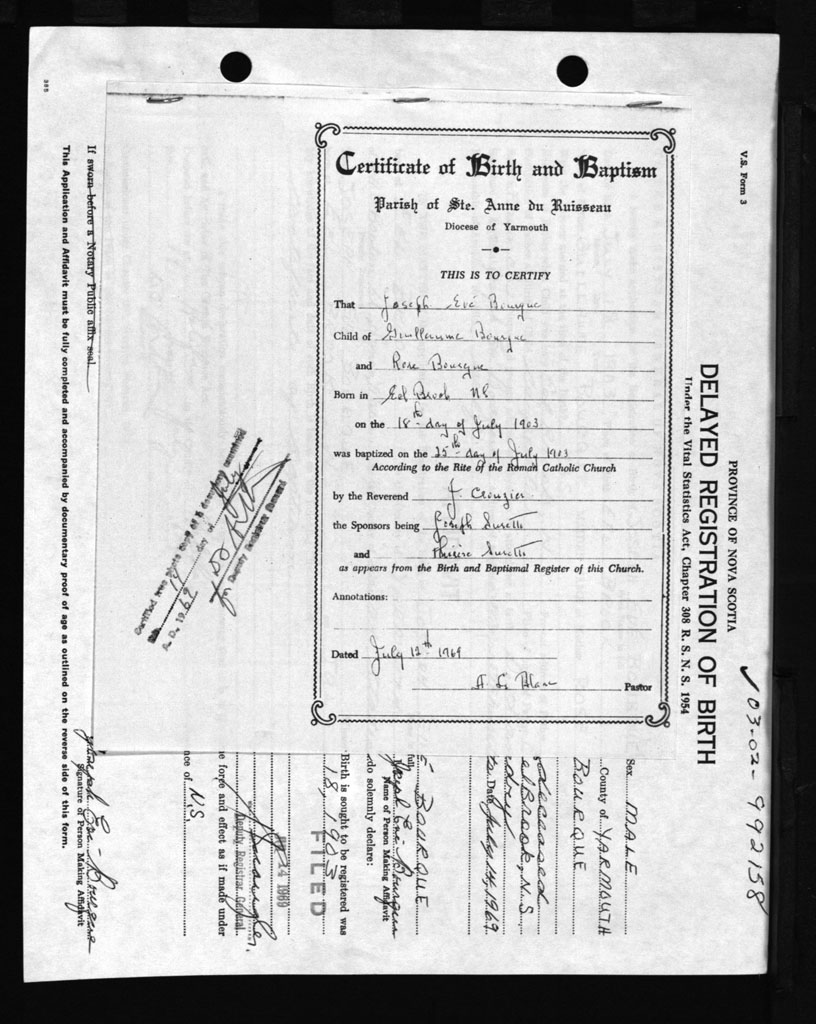 Certificate of Birth and Baptism
Parish of Ste. Anne du Ruisseau
Diocese of Yarmouth
THIS IS TO CERTIFY
That Joseph Evé Bourque
Child of Guillaume Bourque
and Rose Bourque
Born in Eel Brook NS
on the 18th day of July 1903
was baptized on the 25th day of July 1903
According to the Rite of the Roman Catholic Church
by the Reverend J. Crouzier
the Sponsors being Joseph Surette
and Surette
as appears from the Birth and Baptismal Register of this Church.
Annotations:
Dated July 12th 1969
Pastor
V.S. Form 3
PROVINCE OF NOVA SCOTIA
DELAYED REGISTRATION OF BIRTH
Under the Vital Statistics Act, Chapter 308 R. S. N. S. 1954
03-02-992158
Sex MALE
County of YARMOUTH
BOURQUE
deceased
elBrook, N.S.
Date July 14, 1969
BOURQUE
Name of Person Making Affidavit
do solemnly declare:
Birth is sought to be registered was
18, 1903
FILED
14 1969
Deputy Registrar General
e force and effect as if made under
nce of N.S.
Signature of Person Making Affidavit
If sworn before a Notary Public affix seal.
This Application and Affidavit must be fully completed and accompanied by documentary proof of age as outlined on the reverse side of this form.
Certified true photo copy of a document
day of July
A. D. 1969
Deputy Registrar General